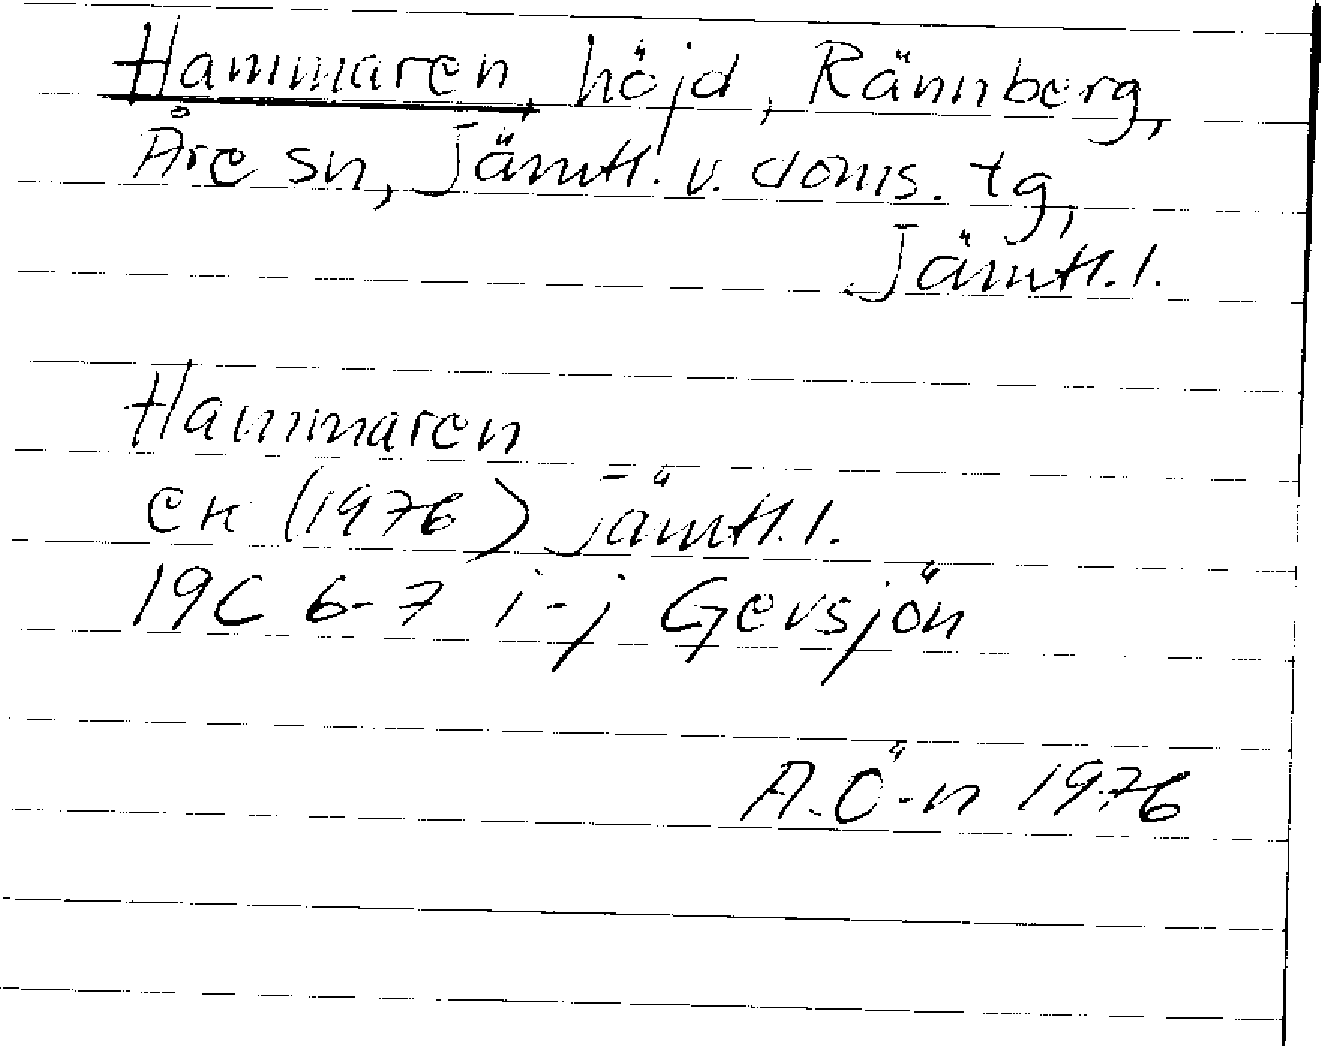 Hammaren, höjd, Rännberg,
Åre sn, Jämtl. v. doms. tg,
Jämtl. l.
Hammaren
ek (1976) Jämtl. l.
19C 6-7 i-j Gevsjön
A. Ö-n 1976